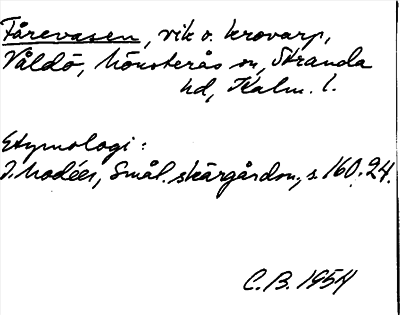 Fårevasen, vik o. krovarp,
Våldö, Mönsterås sn, Stranda
hd, Kalm. l.
Etymologi:
I. Modéer, Smål. skärgårdsn., s. 160. 24.
C.B. 1954